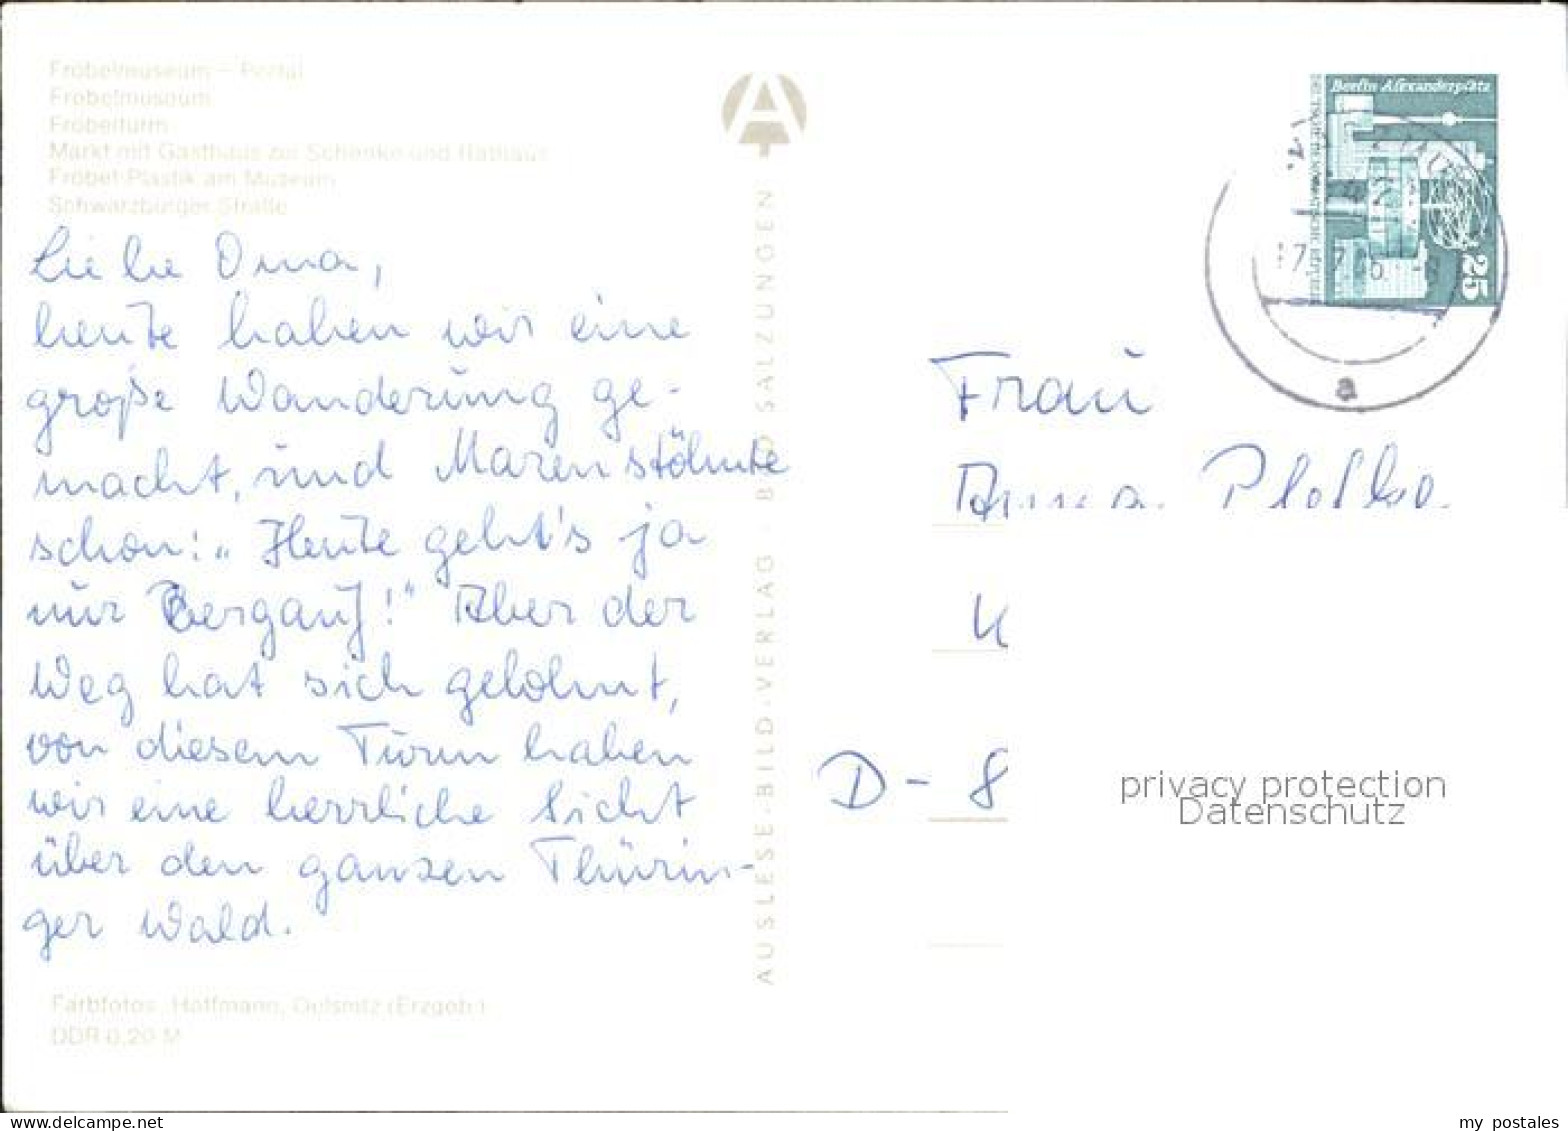 Fröbelmuseum – Portal
Fröbelmuseum
Fröbelturm
Markt mit Gasthaus zur Schenke und Rathaus
Fröbel-Plastik am Museum
Schwarzburger Straße
Liebe Oma,
heute haben wir eine
große Wanderung ge-
macht, und Maren stöhnte
schon: „Heute geht's ja
nur Bergauf!" Aber der
Weg hat sich gelohnt,
von diesem Turm haben
wir eine herrliche Sicht
über den ganzen Thürin-
ger Wald.
Farbfotos: Hoffmann, Oelsnitz (Erzgeb.)
DDR 0,20 M
AUSLESE-BILD-VERLAG · BAD SALZUNGEN
Berlin Alexanderplatz
DEUTSCHE DEMOKRATISCHE REPUBLIK
25
a
Frau
Anna
D - 8
privacy protection
Datenschutz
delcampe.net
my_postales